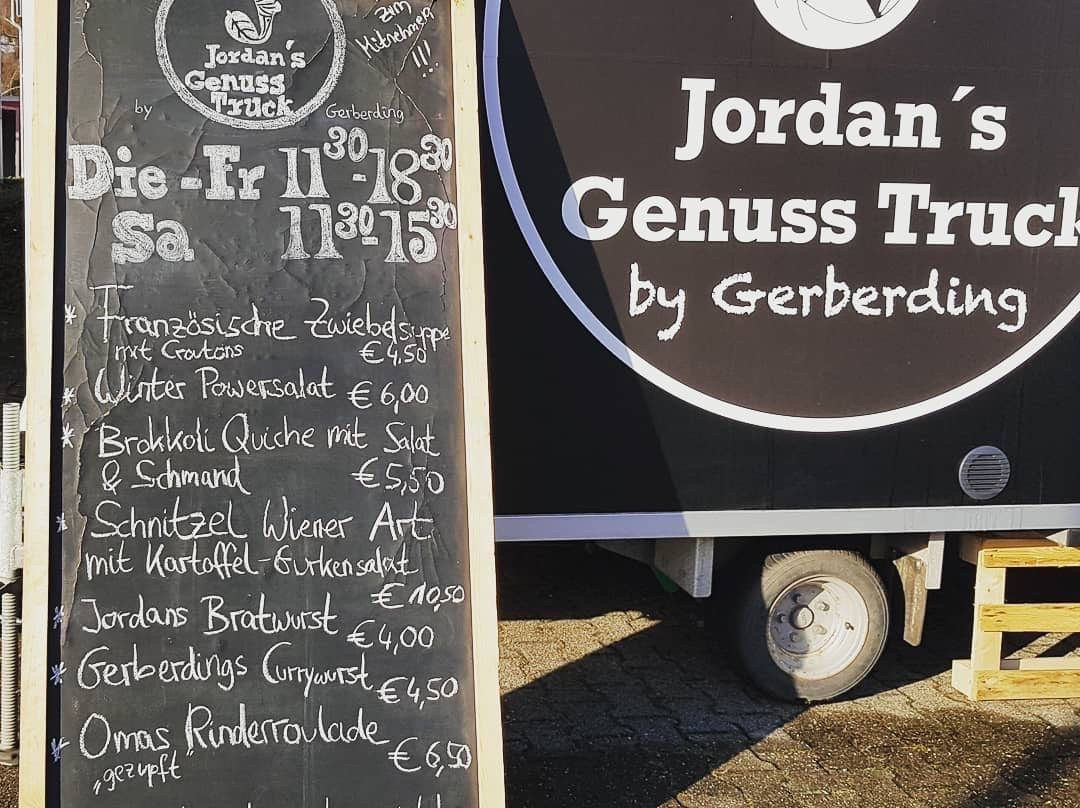 Jordan´s
Genuss
Truck
by Gerberding
Zum
Mitnehmen
!!!
Die - Fr 11³⁰-18³⁰
Sa 11³⁰-15³⁰
* Französische Zwiebelsuppe
mit Croutons € 4,50
* Winter Powersalat € 6,00
* Brokkoli Quiche mit Salat
& Schmand € 5,50
* Schnitzel Wiener Art
mit Kartoffel-Gurkensalat
€ 10,50
* Jordans Bratwurst € 4,00
* Gerberdings Currywurst € 4,50
* Omas Rinderroulade
„gezupft" € 6,50
Jordan´s
Genuss Truck
by Gerberding